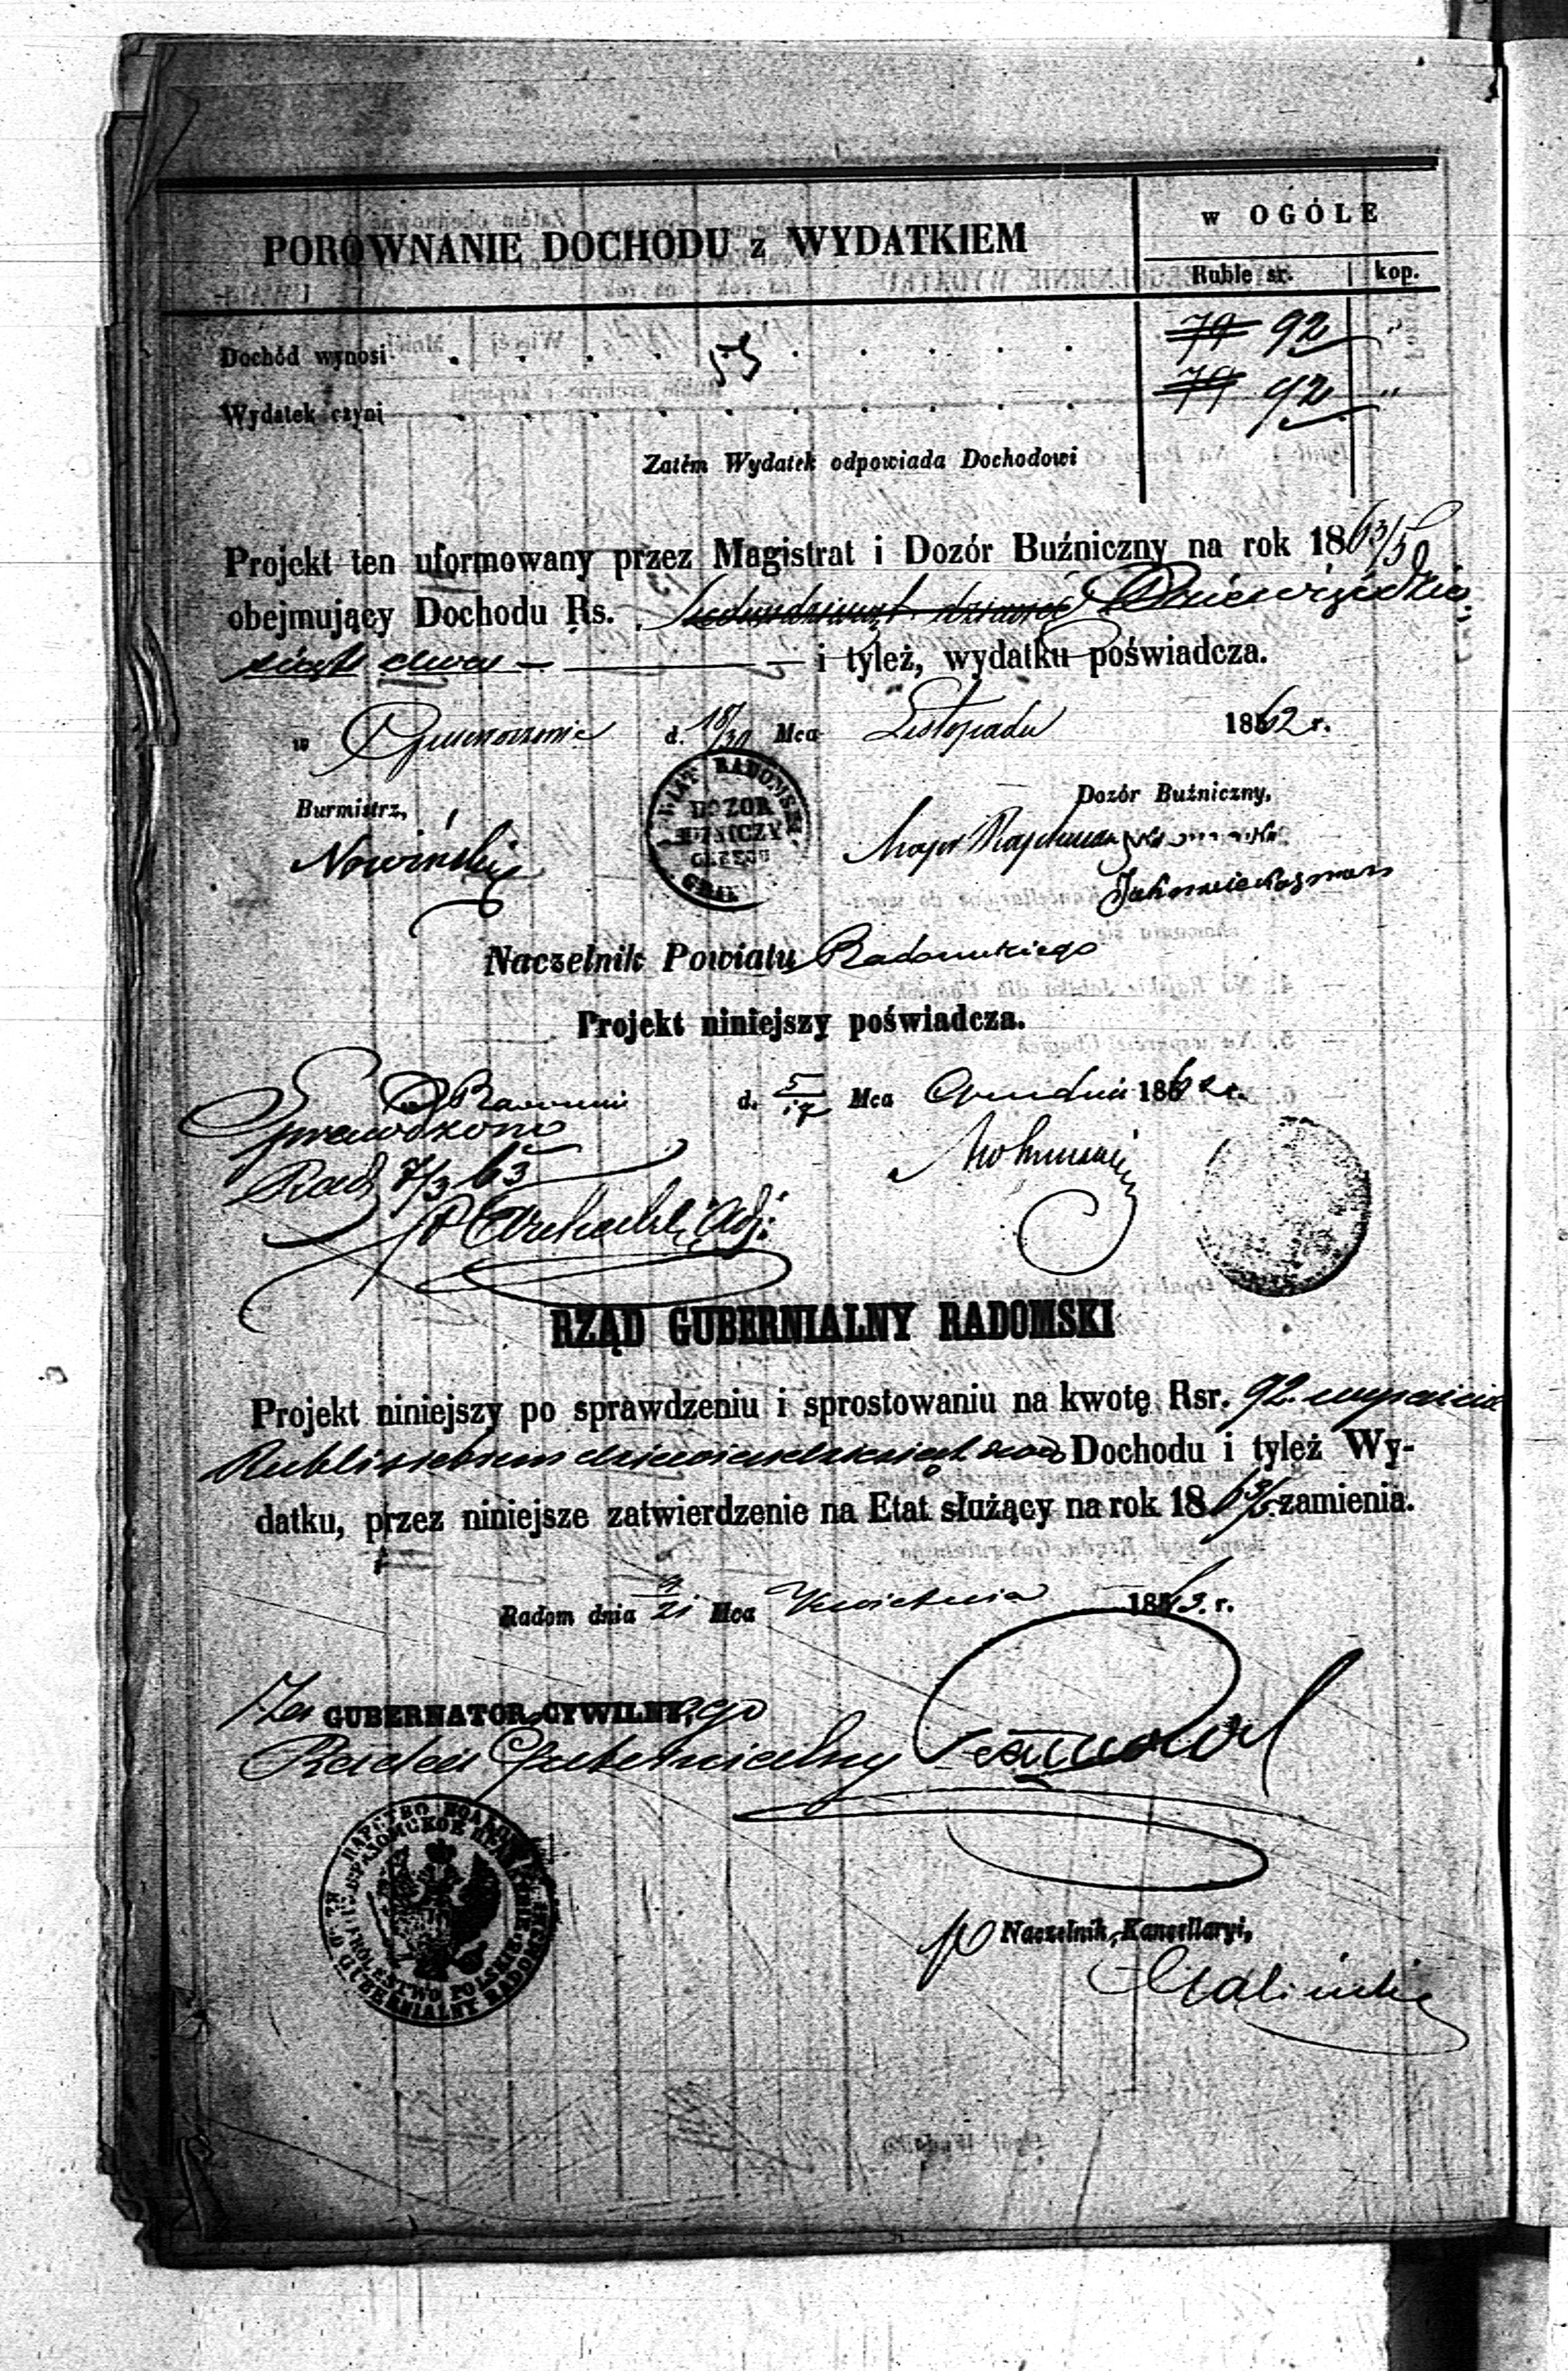 PORÓWNANIE DOCHODU z WYDATKIEM
w OGÓLE
Ruble sr. kop.
Dochód wynosi 79 92 "
53
Wydatek czyni 79 92 "
Zatém Wydatek odpowiada Dochodowi
Projekt ten uformowany przez Magistrat i Dozór Buźniczny na rok 1863/5
obejmujący Dochodu Rs. siedmdziesiąt dziewięć Dziewięćdzie-
siąt dwa — i tyleż, wydatku poświadcza.
w d. 18/30 Mca Listopadu 1862 r.
Burmistrz,
Dozór Buźniczny,
Nowiński
POWIAT RADOMSKI
DOZOR
Naczelnik Powiatu Radomskiego
Projekt niniejszy poświadcza.
w Radomiu d. 5/17 Mca Grudnia 1862 r.
Sprawdzono
Rad. 7/3 63
Adj:
RZĄD GUBERNIALNY RADOMSKI
Projekt niniejszy po sprawdzeniu i sprostowaniu na kwotę Rsr. 92. wyraźnie
Rubli srebrem dziewięćdziesiąt dwa Dochodu i tyleż Wy-
datku, przez niniejsze zatwierdzenie na Etat służący na rok 1863/5 zamienia.
Radom dnia 9/21 Mca Kwietnia 1863. r.
Za GUBERNATOR CYWILNY, ego
Radca Gubernialny
ЦАРСТВО ПОЛЬСКОЕ
KRÓLESTWO POLSKIE
GUBERNIALNY RADOMSKI
p Naczelnik Kancellaryi,